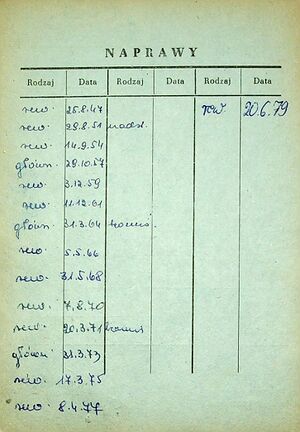 NAPRAWY
Rodzaj Data Rodzaj Data Rodzaj Data
rew. 25.8.47 rew. 20.6.79
rew. 29.8.51 nadst.
rew. 14.9.54
główn. 29.10.57
rew. 3.12.59
rew. 11.12.61
główn. 31.3.64
rew. 5.5.66
rew. 31.5.68
rew. 7.8.70
rew. 20.3.71
główn. 31.3.73
rew. 17.3.75
rew. 8.4.77